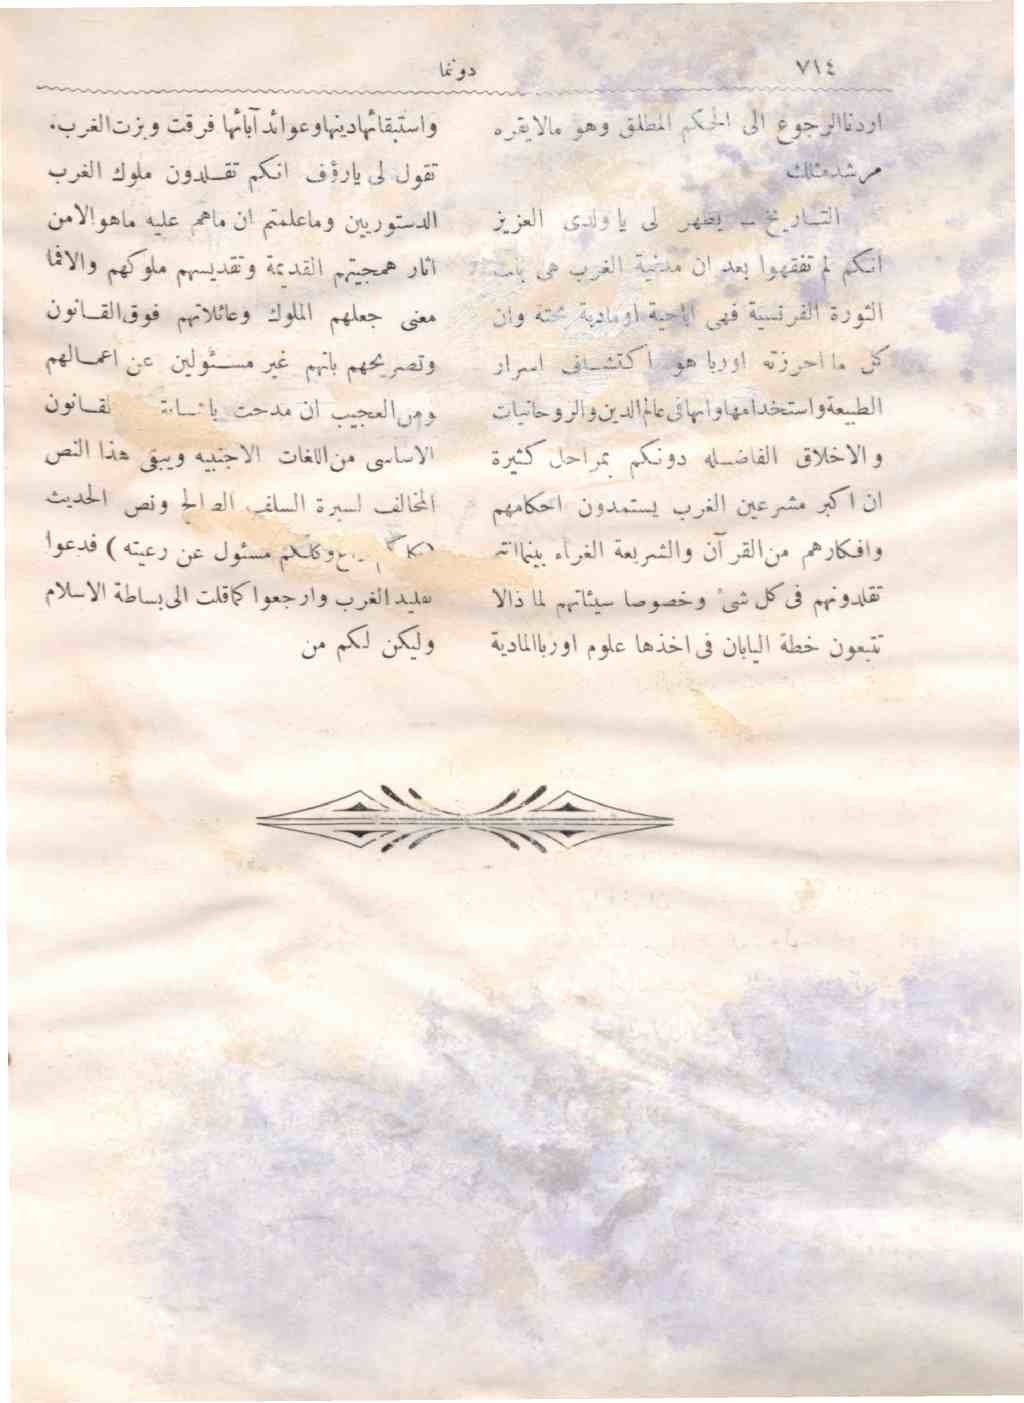 ٧١٤
دونما
اردناالرجوع الى الحكم المطلق وهو مالايقره
مرشدمثلك
التـاريخ ـ يظهر لى ياولدى العزيز
انكم لم تفقهوا بعد ان مدنية الغرب هى بنت
الثورة الفرنسية فهى اباحية اومادية بحتة وان
كل مااحرزته اوربا هو اكتشـاف اسرار
الطبيعةواستخدامهاوانهافى عالم الدين والروحانيات
والاخلاق الفاضـله دونكم بمراحل كثيرة
ان اكبر مشرعين الغرب يستمدون احكامهم
وافكارهم من القرآن والشريعة الغراء بينماانتم
تقلدونهم فى كل شىء وخصوصا سيئاتهم لما ذالا
تتبعون خطة اليابان فى اخذها علوم اورباالمادية
واستبقائهادينهاوعوائد آبائها فرقت وبزت الغرب.
تقول لى يارؤف انكم تقـلدون ملوك الغرب
الدستوريين وماعلمتم ان ماهم عليه ماهوالامن
اثار همجيتهم القديمة وتقديسهم ملوكهم والافما
معنى جعلهم الملوك وعائلاتهم فوق القـانون
وتصريحهم بانهم غير مسـئولين عن اعمـالهم
ومن العجيب ان مدحت باشـا القـانون
الاساسى من اللغات الاجنبيه ويبقى هذا النص
المخالف لسيرة السلف الصالح ونص الحديث
(كلكم راع وكلكم مسئول عن رعيته) فدعوا
تقليد الغرب وارجعوا كماقلت الى بساطة الاسلام
وليكن لكم من